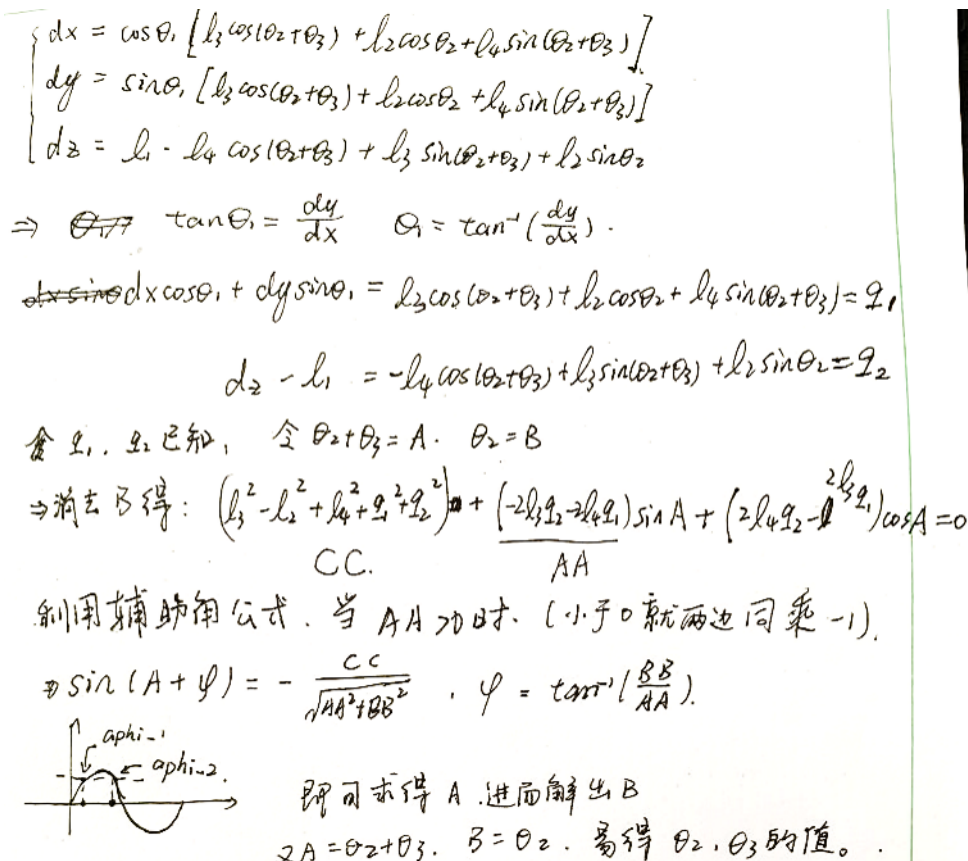 dx = cosθ₁ [l₃cos(θ₂+θ₃) + l₂cosθ₂ + l₄sin(θ₂+θ₃)]
dy = sinθ₁ [l₃cos(θ₂+θ₃) + l₂cosθ₂ + l₄sin(θ₂+θ₃)]
dz = l₁ - l₄ cos(θ₂+θ₃) + l₃ sin(θ₂+θ₃) + l₂ sinθ₂
⇒ tanθ₁ = dy/dx θ₁ = tan⁻¹(dy/dx).
dxcosθ₁ + dysinθ₁ = l₃cos(θ₂+θ₃) + l₂cosθ₂ + l₄sin(θ₂+θ₃) = q₁
dz - l₁ = -l₄cos(θ₂+θ₃) + l₃sin(θ₂+θ₃) + l₂sinθ₂ = q₂
q₁, q₂ 已知, 令 θ₂+θ₃ = A. θ₂ = B
⇒消去B得: (l₃² - l₂² + l₄² + q₁² + q₂²) + (-2l₃q₂ - 2l₄q₁) sinA + (2l₄q₂ - 2l₃q₁)cosA = 0
CC. AA
利用辅助角公式. 当 AA>0时. (小于0就两边同乘 -1).
sin(A+φ) = - CC/√(AA²+BB²) , φ = tan⁻¹(BB/AA).
aphi-1
aphi-2.
即可求得 A 进而解出B
又A = θ₂+θ₃. B = θ₂. 易得 θ₂, θ₃的值。